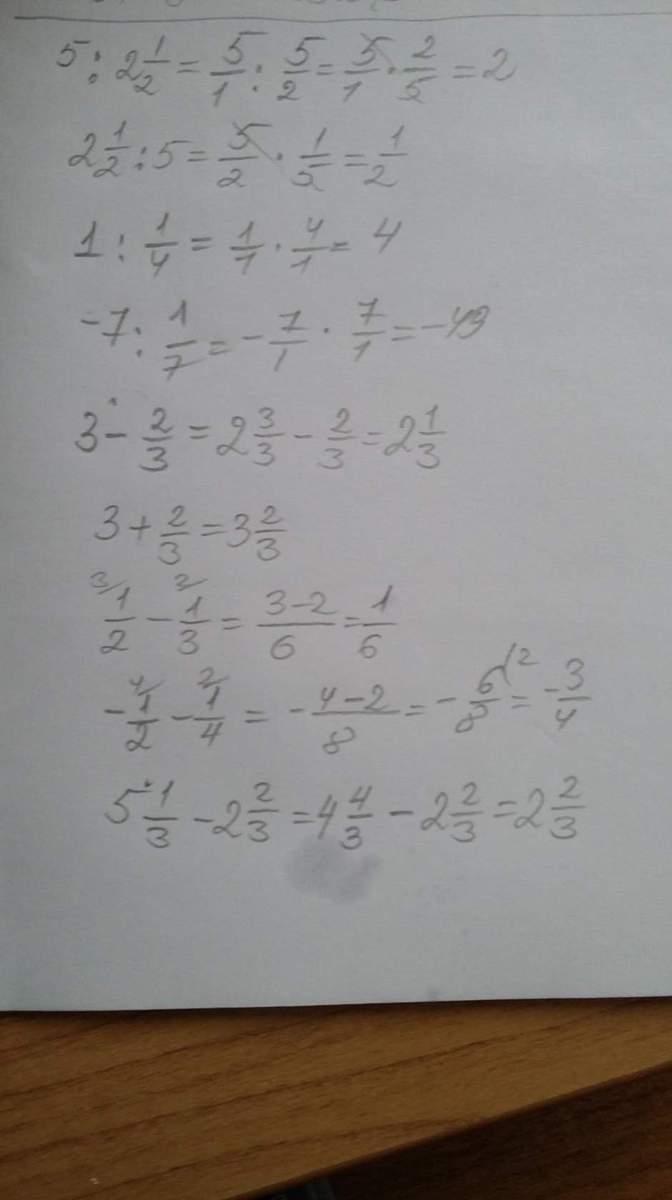 5 : 2 1/2 = 5/1 : 5/2 = 5/1 · 2/5 = 2
2 1/2 : 5 = 5/2 · 1/5 = 1/2
1 : 1/4 = 1/1 · 4/1 = 4
-7 : 1/7 = - 7/1 · 7/1 = -49
3 - 2/3 = 2 3/3 - 2/3 = 2 1/3
3 + 2/3 = 3 2/3
3/ 1/2 - 2/ 1/3 = 3-2/6 = 1/6
- 4/ 1/2 - 2/ 1/4 = - 4-2/8 = - 6/8 (2 = - 3/4
5 1/3 - 2 2/3 = 4 4/3 - 2 2/3 = 2 2/3